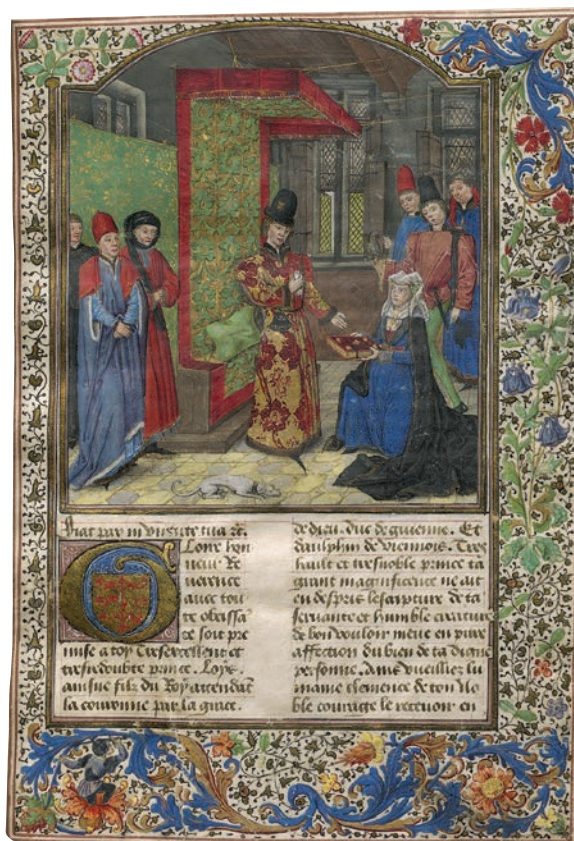 Fiat pax in virtute tua rc.
Loire hon
neur Re
uerence
auec tou
te obeissā
ce soit pre
mise a toy Tresexcellent et
tresredoubte prince. Loys.
ainsne filz du Roy attendāt
la couronne par la grace.
de dieu. duc de guienne. Et
daulphin de viennois. Tres
hault et tresnoble prince ta
grant magnificence ne ait
en despris lescripture de ta
seruante et humble creature
de bon vouloir meue en pure
affection du bien de ta digne
personne. Ains vueillez lu
maine clemence de ton no
ble couraige le receuoir en